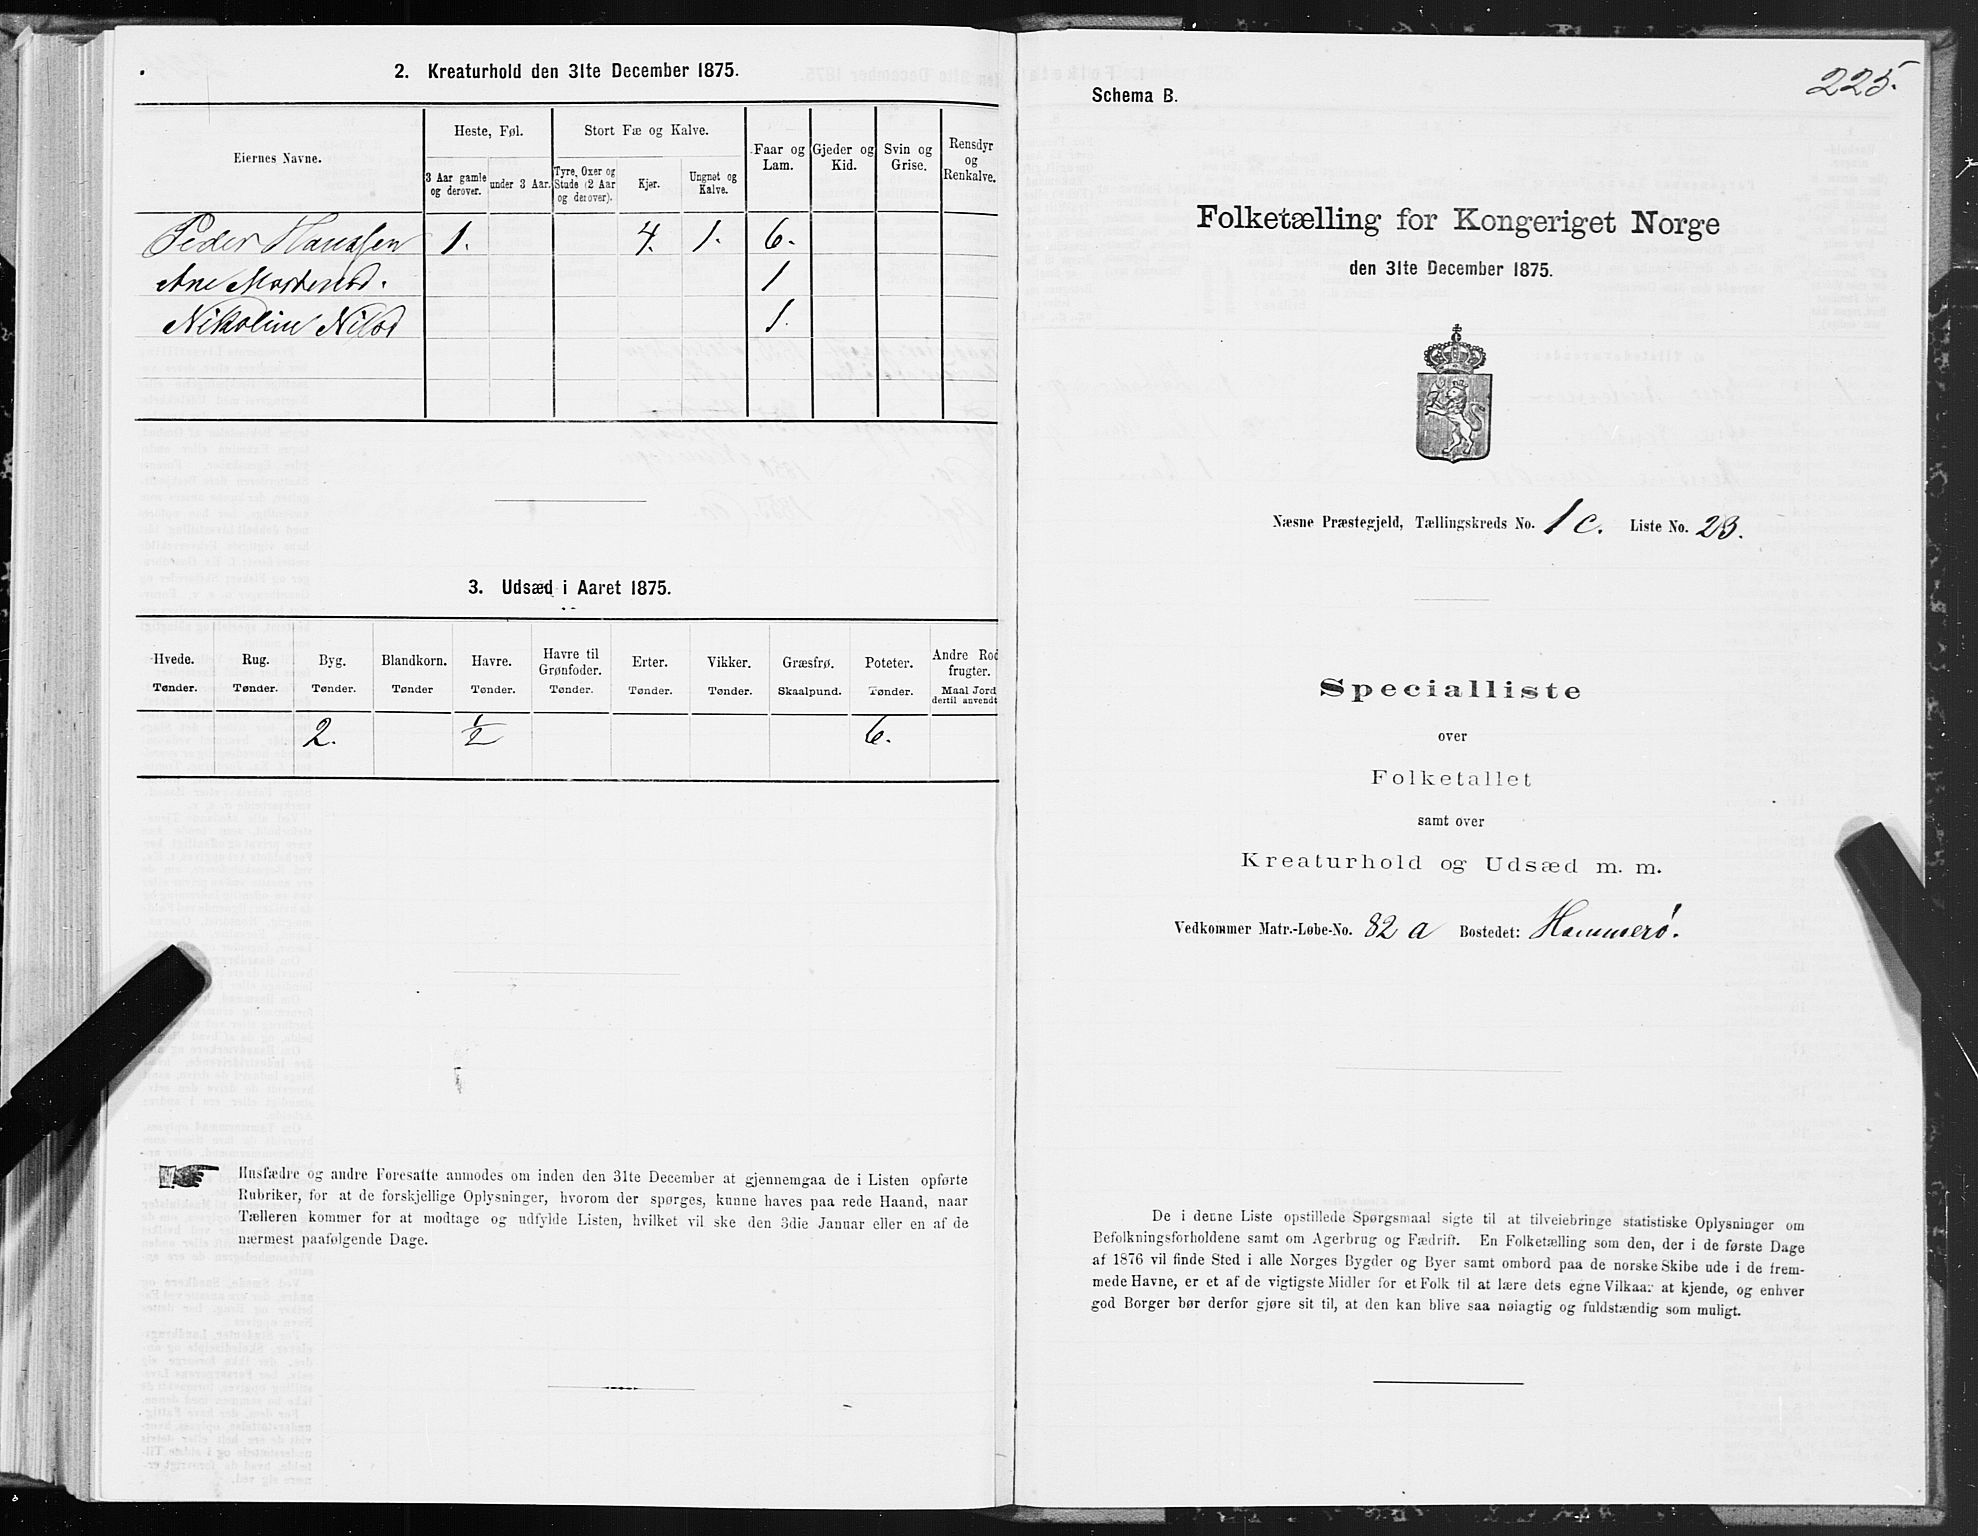 2. Kreaturhold den 31te December 1875.
Eiernes Navne.
Heste, Føl.
Stort Fæ og Kalve.
Faar og Lam.
Gjeder og Kid.
Svin og Grise.
Rensdyr og Renkalve.
3 Aar gamle og derover.
under 3 Aar.
Tyre, Oxer og Stude (2 Aar og derover).
Kjør.
Ungnøt og Kalve.
Peder Hansen 1. 4. 1. 6.
Ane 1
Nikoline Nilsd 1.
3. Udsæd i Aaret 1875.
Hvede. Rug. Byg. Blandkorn. Havre. Havre til Grønfoder. Erter. Vikker. Græsfrø. Poteter. Andre Rodfrugter.
Tønder. Tønder. Tønder. Tønder Tønder. Tønder. Tønder. Tønder. Skaalpund. Tønder. Maal Jord dertil anvendt
2. 1/2 6.
Husfædre og andre Foresatte anmodes om inden den 31te December at gjennemgaa de i Listen opførte
Rubriker, for at de forskjellige Oplysninger, hvorom der spørges, kunne haves paa rede Haand, naar
Tælleren kommer for at modtage og udfylde Listen, hvilket vil ske den 3die Januar eller en af de
nærmest paafølgende Dage.
225.
Schema B.
Folketælling for Kongeriget Norge
den 31te December 1875.
Næsne Præstegjeld, Tællingskreds No. 1 c. Liste No. 23.
Specialliste
over
Folketallet
samt over
Kreaturhold og Udsæd m. m.
Vedkommer Matr.-Løbe-No. 82 a Bostedet: Hammerø.
De i denne Liste opstillede Spørgsmaal sigte til at tilveiebringe statistiske Oplysninger om
Befolkningsforholdene samt om Agerbrug og Fædrift. En Folketælling som den, der i de første Dage
af 1876 vil finde Sted i alle Norges Bygder og Byer samt ombord paa de norske Skibe ude i de frem-
mede Havne, er et af de vigtigste Midler for et Folk til at lære dets egne Vilkaar at kjende, og enhver
god Borger bør derfor gjøre sit til, at den kan blive saa nøiagtig og fuldstændig som muligt.